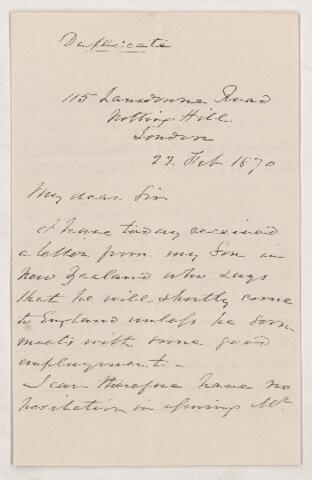 Duplicate
115 Lansdowne Road
Notting Hill
London
27 Feb 1870
My dear Sir
I have today received
a letter from my Son in
New Zealand who says
that he will shortly come
to England unless he soon
meets with some good
employment. -
I can therefore have no
hesitation in